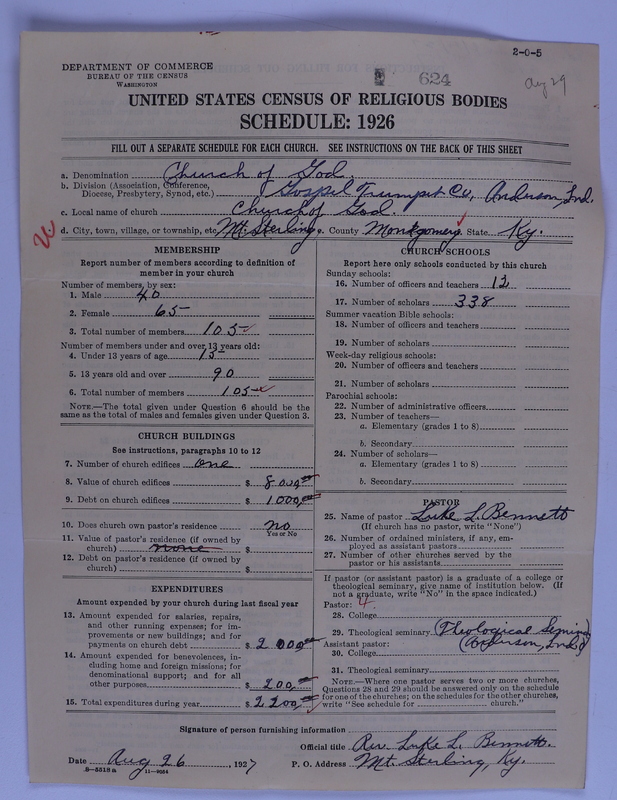 2-0-5
DEPARTMENT OF COMMERCE
BUREAU OF THE CENSUS
WASHINGTON
624
Aug 29
UNITED STATES CENSUS OF RELIGIOUS BODIES
SCHEDULE: 1926
FILL OUT A SEPARATE SCHEDULE FOR EACH CHURCH. SEE INSTRUCTIONS ON THE BACK OF THIS SHEET
a. Denomination Church of God.
b. Division (Association, Conference, Diocese, Presbytery, Synod, etc.) Gospel Trumpet Co, Anderson, Ind.
c. Local name of church Church of God.
d. City, town, village, or township, etc. Mt. Sterling e. County Montgomery State Ky.
MEMBERSHIP
Report number of members according to definition of
member in your church
Number of members, by sex:
1. Male 40
2. Female 65
3. Total number of members 105
Number of members under and over 13 years old:
4. Under 13 years of age 15
5. 13 years old and over 90
6. Total number of members 105
NOTE.—The total given under Question 6 should be the
same as the total of males and females given under Question 3.
CHURCH BUILDINGS
See instructions, paragraphs 10 to 12
7. Number of church edifices one
8. Value of church edifices $ 8000.00
9. Debt on church edifices $ 1000.00
10. Does church own pastor's residence no
Yes or No
11. Value of pastor's residence (if owned by
church) none $
12. Debt on pastor's residence (if owned by
church) $
EXPENDITURES
Amount expended by your church during last fiscal year
13. Amount expended for salaries, repairs,
and other running expenses; for im-
provements or new buildings; and for
payments on church debt $ 2000.00
14. Amount expended for benevolences, in-
cluding home and foreign missions; for
denominational support; and for all
other purposes $ 200.00
15. Total expenditures during year $ 2200.00
CHURCH SCHOOLS
Report here only schools conducted by this church
Sunday schools:
16. Number of officers and teachers 12
17. Number of scholars 338
Summer vacation Bible schools:
18. Number of officers and teachers
19. Number of scholars
Week-day religious schools:
20. Number of officers and teachers
21. Number of scholars
Parochial schools:
22. Number of administrative officers
23. Number of teachers—
a. Elementary (grades 1 to 8)
b. Secondary
24. Number of scholars—
a. Elementary (grades 1 to 8)
b. Secondary
PASTOR
25. Name of pastor Luke L. Bennett
(If church has no pastor, write "None")
26. Number of ordained ministers, if any, em-
ployed as assistant pastors
27. Number of other churches served by the
pastor or his assistants
If pastor (or assistant pastor) is a graduate of a college or
theological seminary, give name of institution below. (If
not a graduate, write "No" in the space indicated.)
Pastor: 4
28. College
29. Theological seminary (Theological Seminary
Assistant pastor: (Anderson, Ind)
30. College
31. Theological seminary
NOTE.—Where one pastor serves two or more churches,
Questions 28 and 29 should be answered only on the schedule
for one of the churches; on the schedules for the other churches,
write "See schedule for church."
Signature of person furnishing information
Official title Rev. Luke L. Bennett.
Date Aug 26, 1927 P. O. Address Mt. Sterling, Ky.
8-5518a 11-9024